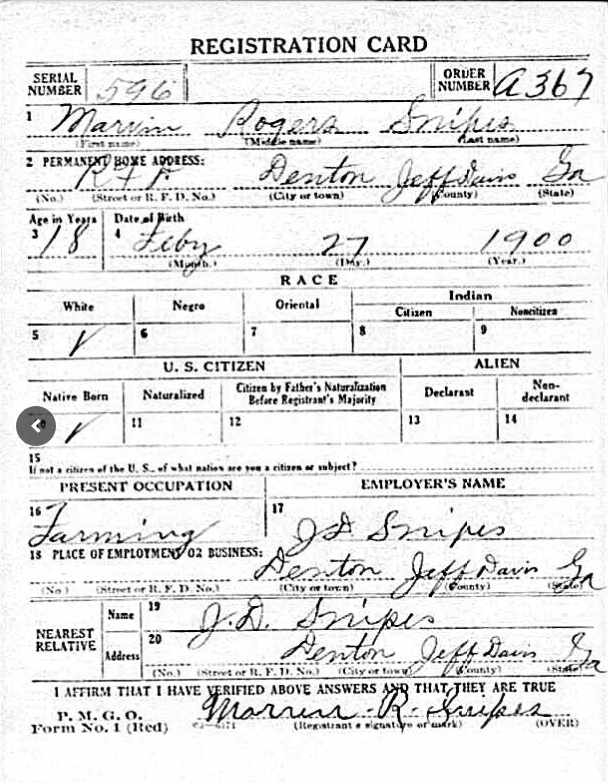 REGISTRATION CARD
SERIAL NUMBER 596 ORDER NUMBER A367
1 Marvin Rogers Snipes
(First name) (Middle name) (Last name)
2 PERMANENT HOME ADDRESS:
R F D Denton Jeff Davis Ga
(No.) (Street or R. F. D. No.) (City or town) (County) (State)
Age in Years Date of Birth
3 18 4 Feby 27 1900
(Month.) (Day.) (Year.)
RACE
White Negro Oriental Indian
Citizen Noncitizen
5 ✓ 6 7 8 9
U. S. CITIZEN ALIEN
Native Born Naturalized Citizen by Father's Naturalization Before Registrant's Majority Declarant Non-declarant
10 ✓ 11 12 13 14
15
If not a citizen of the U. S., of what nation are you a citizen or subject?
PRESENT OCCUPATION EMPLOYER'S NAME
16 Farming 17 J D Snipes
18 PLACE OF EMPLOYMENT OR BUSINESS:
Denton Jeff Davis Ga
(No.) (Street or R. F. D. No.) (City or town) (County) (State)
NEAREST RELATIVE Name 19 J. D. Snipes
Address 20 Denton Jeff Davis Ga
(No.) (Street or R. F. D. No.) (City or town) (County) (State)
I AFFIRM THAT I HAVE VERIFIED ABOVE ANSWERS AND THAT THEY ARE TRUE
P. M. G. O.
Form No. 1 (Red) Marvin R. Snipes
(Registrant's signature or mark) (OVER)